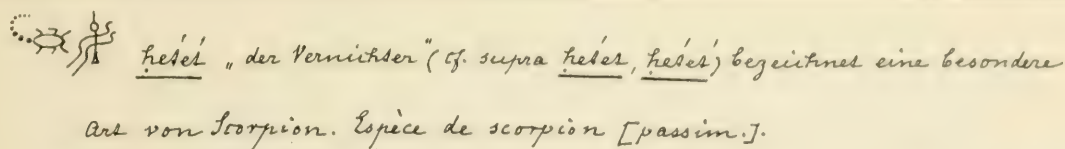 ḥeṭeṭ „der Vernichter" (cf. supra ḥeṭeṭ, ḥeṭeṭ) bezeichnet eine besondere
Art von Scorpion. Espèce de scorpion [passim.].